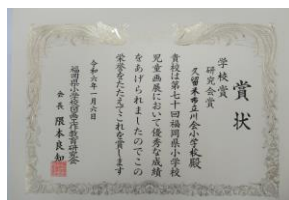 賞状
学校賞
研究会賞
久留米市立川会小学校殿
貴校は第七十回福岡県小学校
児童画展において優秀な成績
をあげられましたのでこの
栄誉をたたえてこれを賞します
令和六年一月六日
福岡県小学校図画工作教育研究会
会長 隈本良知